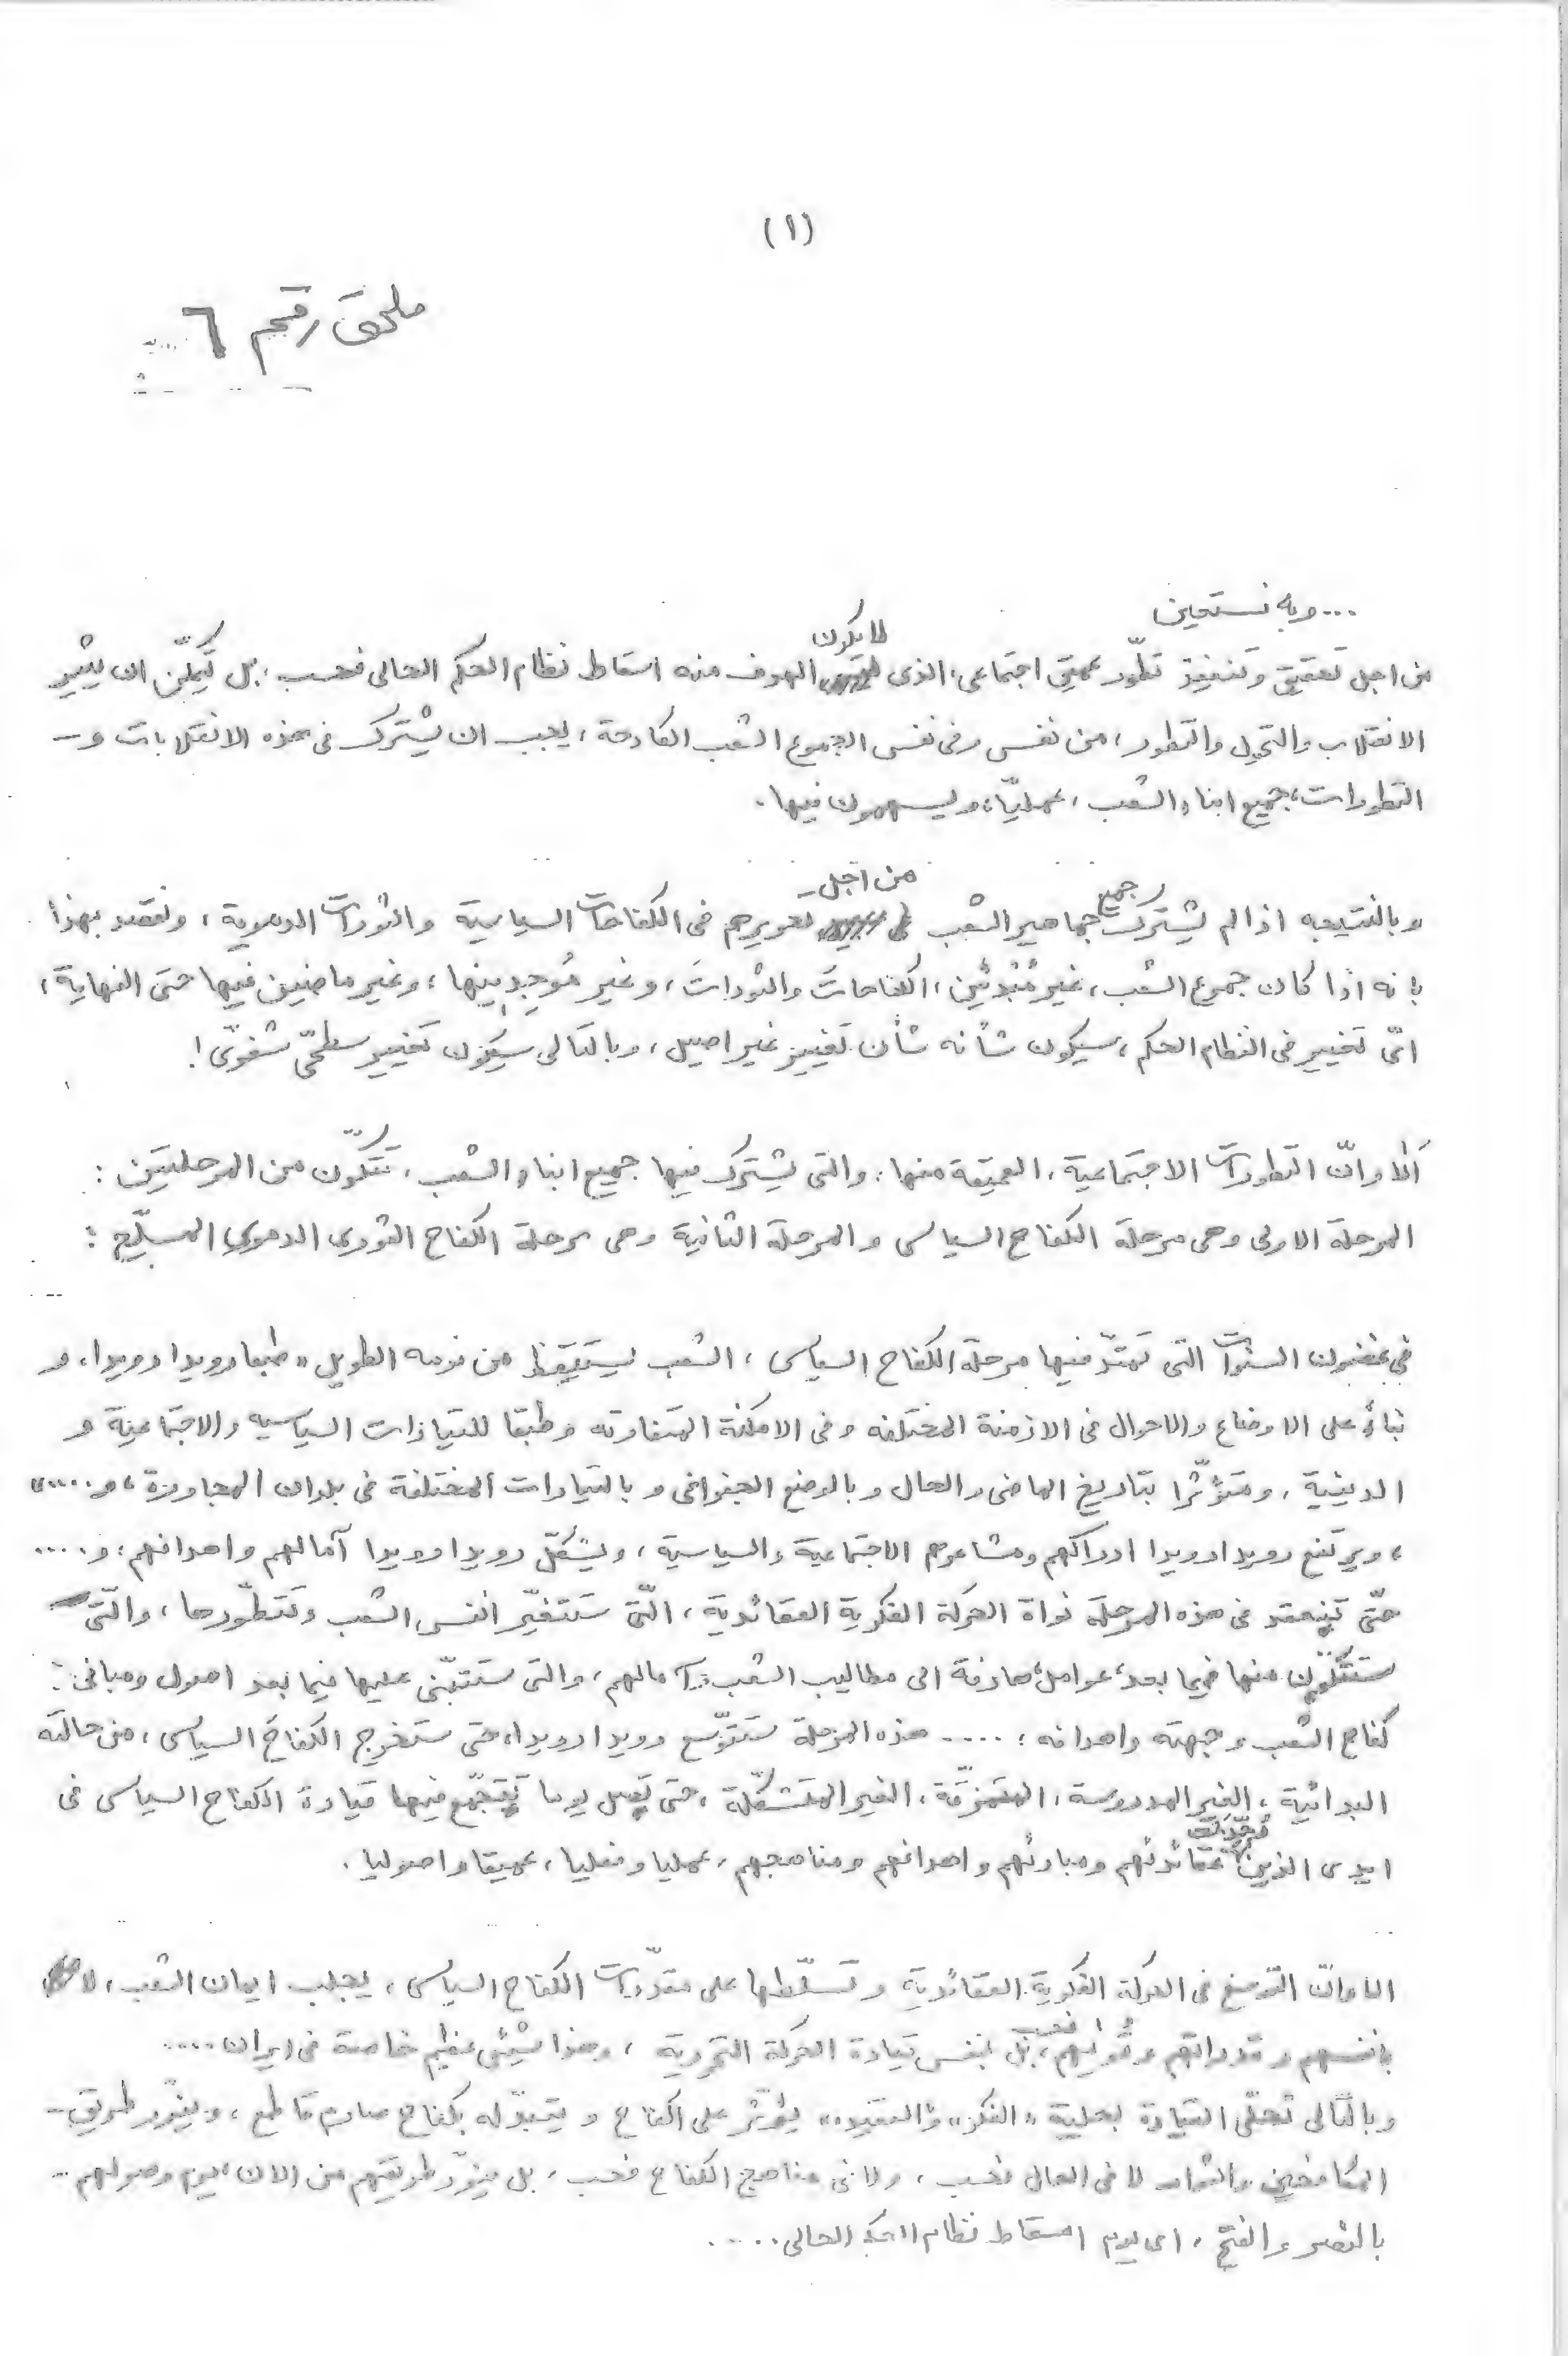 (١)
ملحق رقم ٦
... وبه نستعين
من اجل تحقيق وتنفيذ تطوّر عميق اجتماعى، الذى لا يكون الهدف منه اسقاط نظام الحكم الحالى فحسب، بل يمكن ان يثير
الانقلاب والتحول والتطور، من نفس وفى نفس الجموع الشعب الكادحة، يجب ان يشترك فى هذه الانقلابات و-
التطورات، جميع ابناء الشعب، عمليّا، ويسهمون فيها.
وبالنتيجه اذا لم يشترك جميع جماهير الشعب من اجل - تحريرهم فى الكفاحات السياسية والثورات الدموية، ونقصد بهذا
بانه اذا كان جموع الشعب، غير مُبْدئين، الكفاحات والثورات، وغير مُوجِدينها، وغير ماضين فيها حتى النهاية،
اىّ تغيير فى النظام الحكم، سيكون شأنه شأن تغيير غير اصيل، وبالتالى سيكون تغيير سطحىّ شفوىّ!
اَلا وانّ التطورات الاجتماعية، العميقة منها، والتى يشترك فيها جميع ابناء الشعب، تتكوّن من المرحلتين:
المرحلة الاولى وهى مرحلة الكفاح السياسى والمرحلة الثانية وهى مرحلة الكفاح الثورى الدموى المسلّح:
فى غضون السنوات التى تمتدّ فيها مرحلة الكفاح السياسى، الشعب يستيقظ من نومه الطويل «طبعا رويدا رويدا، و
بناءً على الاوضاع والاحوال فى الازمنة المختلفه وفى الامكنة المتفاوته وطبقا للتيارات السياسيه والاجتماعية و
الدينية، ومتؤثّرا بتاريخ الماضى والحال وبالوضع الجغرافى وبالتيارات المختلفة فى بلدان المجاورة، و.....»
، ويرتفع رويدا رويدا ادراكهم ومشاعرهم الاجتماعية والسياسية، ويشكّل رويدا رويدا آمالهم واهدافهم، و....
حتّى تنعقد فى هذه المرحلة نواة الحركة الفكرية العقائدية، الّتى ستتغيّر انفس الشعب وتتطوّرها، والّتى
ستتكوّن منها فيما بعد، عوامل هادفة الى مطاليب الشعب وآمالهم، والتى ستتبنّى عليها فيما بعد اصول ومبانى:
كفاح الشعب وجبهته واهدافه، .... هذه المرحلة ستتوّسع رويدا رويدا، حتى ستخرج الكفاح السياسى، من حالته
البدائية، الغير المدروسة، المتمزّقة، الغير المتشكّلة، حتى تصل يوما تتجمّع فيها قيادة الكفاح السياسى فى
ايدى الذين عقائدهم ومبادئهم واهدافهم ومناهجهم، عمليا وفعليا، عميقا واصوليا.
الا وانّ التوسّع فى الحركة الفكرية العقائدية وتسلّطها على مقدّرات الكفاح السياسى، يجلب ايمان الشعب، لا
بانفسهم وقدراتهم وقوّتهم فحسب، بل بنفس قيادة الحركة التحررية، وهذا شيئى عظيم خاصة فى ايران....
وبالتالى تحلّى القيادة بحلية «الفكر» و«العقيده» يؤثّر على الكفاح ويتبدّله بكفاح صارم قاطع، وينوّر طريق-
المكافحين والثوار لا فى الحال فحسب، ولا فى مناهج الكفاح فحسب، بل ينوّر طريقهم من الان، ليوم وصولهم..
بالنصر والفتح، اى يوم اسقاط نظام الحكم الحالى.....